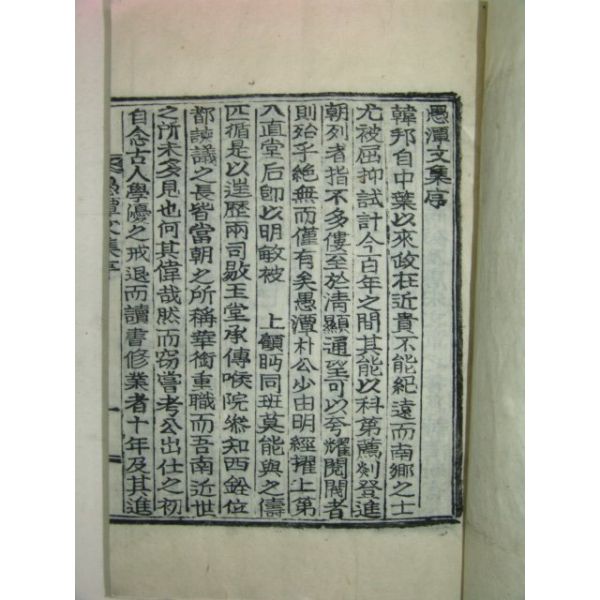 愚潭文集序
韓邦自中葉以來政在近貴不能紀遠而南鄉之士
尤被屈抑試計今百年之間其能以科第薦剡登進
朝列者指不多僂至於淸顯通望可以夸耀閥閱者
則殆乎絶無而僅有矣愚潭朴公少由明經擢上第
入直堂后卽以明敏被 上顧眄同班莫能與之儔
匹循是以進歷兩司敭玉堂承傳喉院叅知西銓位
都諫議之長皆當朝之所稱華銜重職而吾南近世
之所未多見也何其偉哉然而窃嘗考公出仕之初
自念古人學優之戒退而讀書修業者十年及其進
愚潭文集序
一